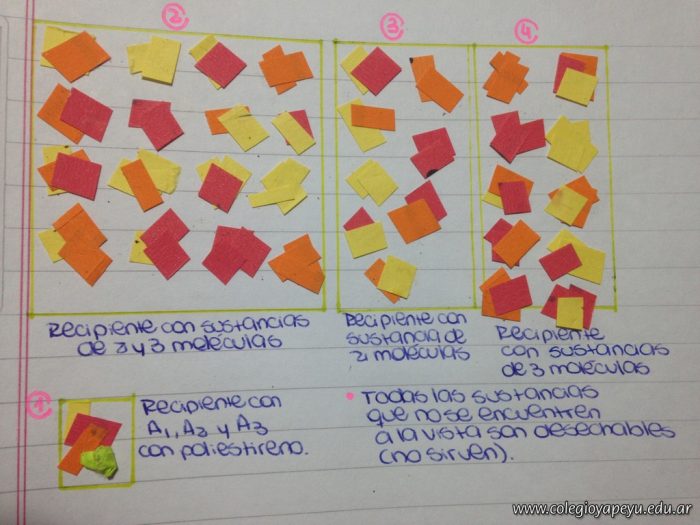 2
3
4
Recipiente con sustancias
de 2 y 3 moléculas
Recipiente con
sustancia de
2 moléculas
Recipiente
con sustancias
de 3 moléculas
1
Recipiente con
A1, A2 y A3
con poliestireno.
• Todas las sustancias
que no se encuentren
a la vista son desechables
(no sirven).
www.colegioyapeyu.edu.ar